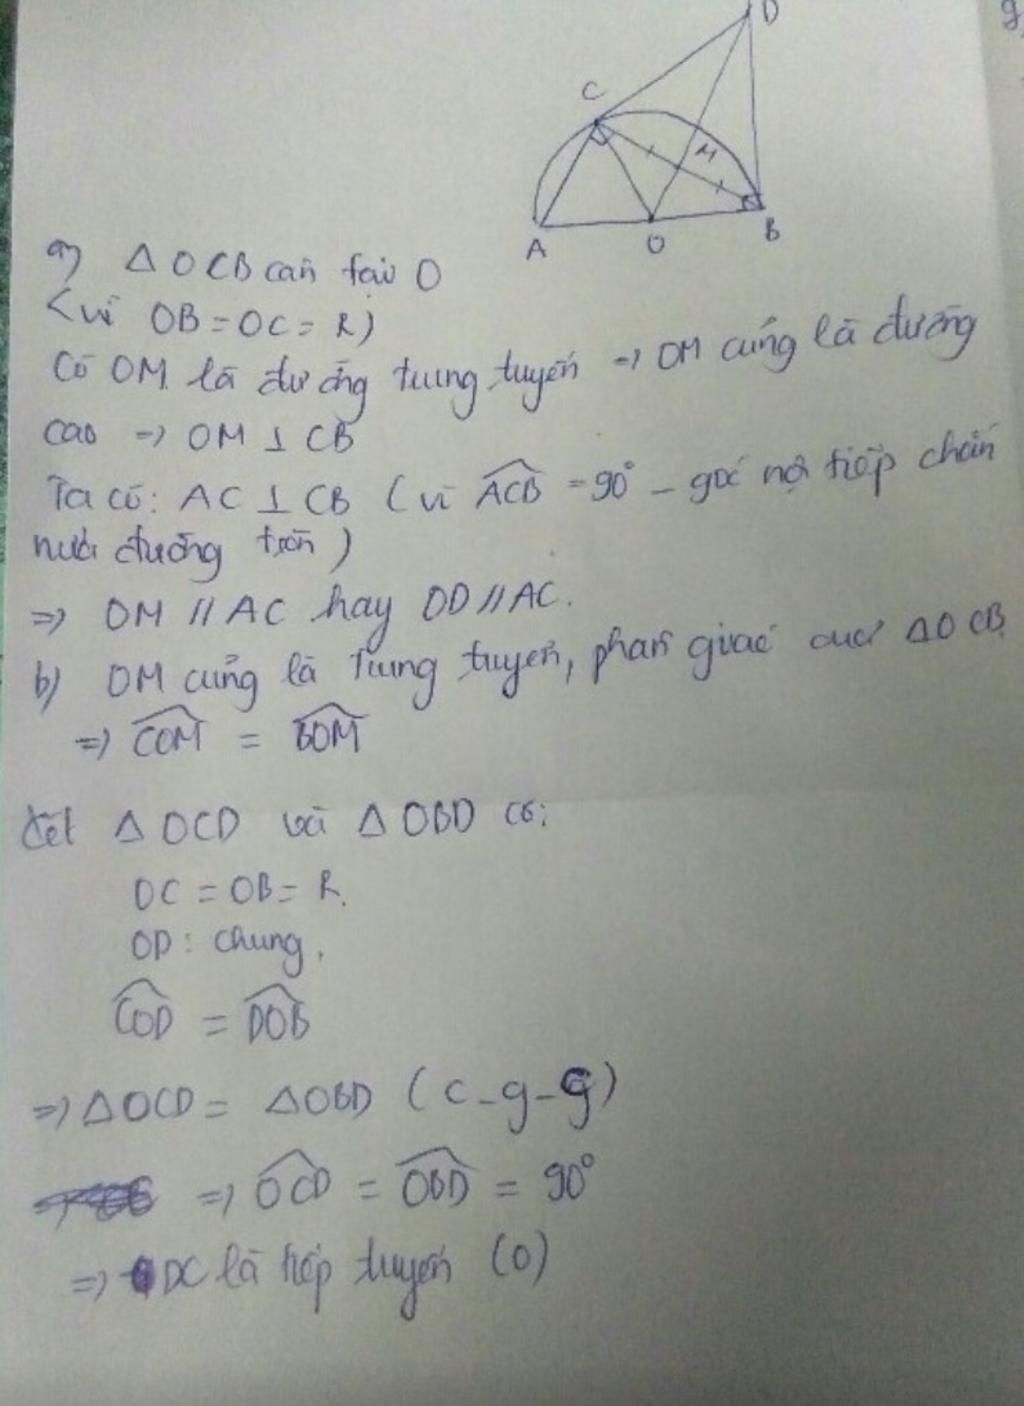 D
C
M
A
O
B
a) Δ OCB cân tại O
(vì OB = OC = R)
Có OM là đường trung tuyến => OM cũng là đường
cao => OM ⊥ CB
Ta có: AC ⊥ CB (vì ACB = 90° - góc nội tiếp chắn
nửa đường tròn)
=> OM // AC hay OD // AC.
b) OM cũng là trung tuyến, phân giác của ΔOCB
=> COM = BOM
Xét Δ OCD và Δ OBD có:
OC = OB = R.
OD: chung.
COD = DOB
=> ΔOCD = ΔOBD (c-g-g)
=> OCD = OBD = 90°
=> DC là tiếp tuyến (O)